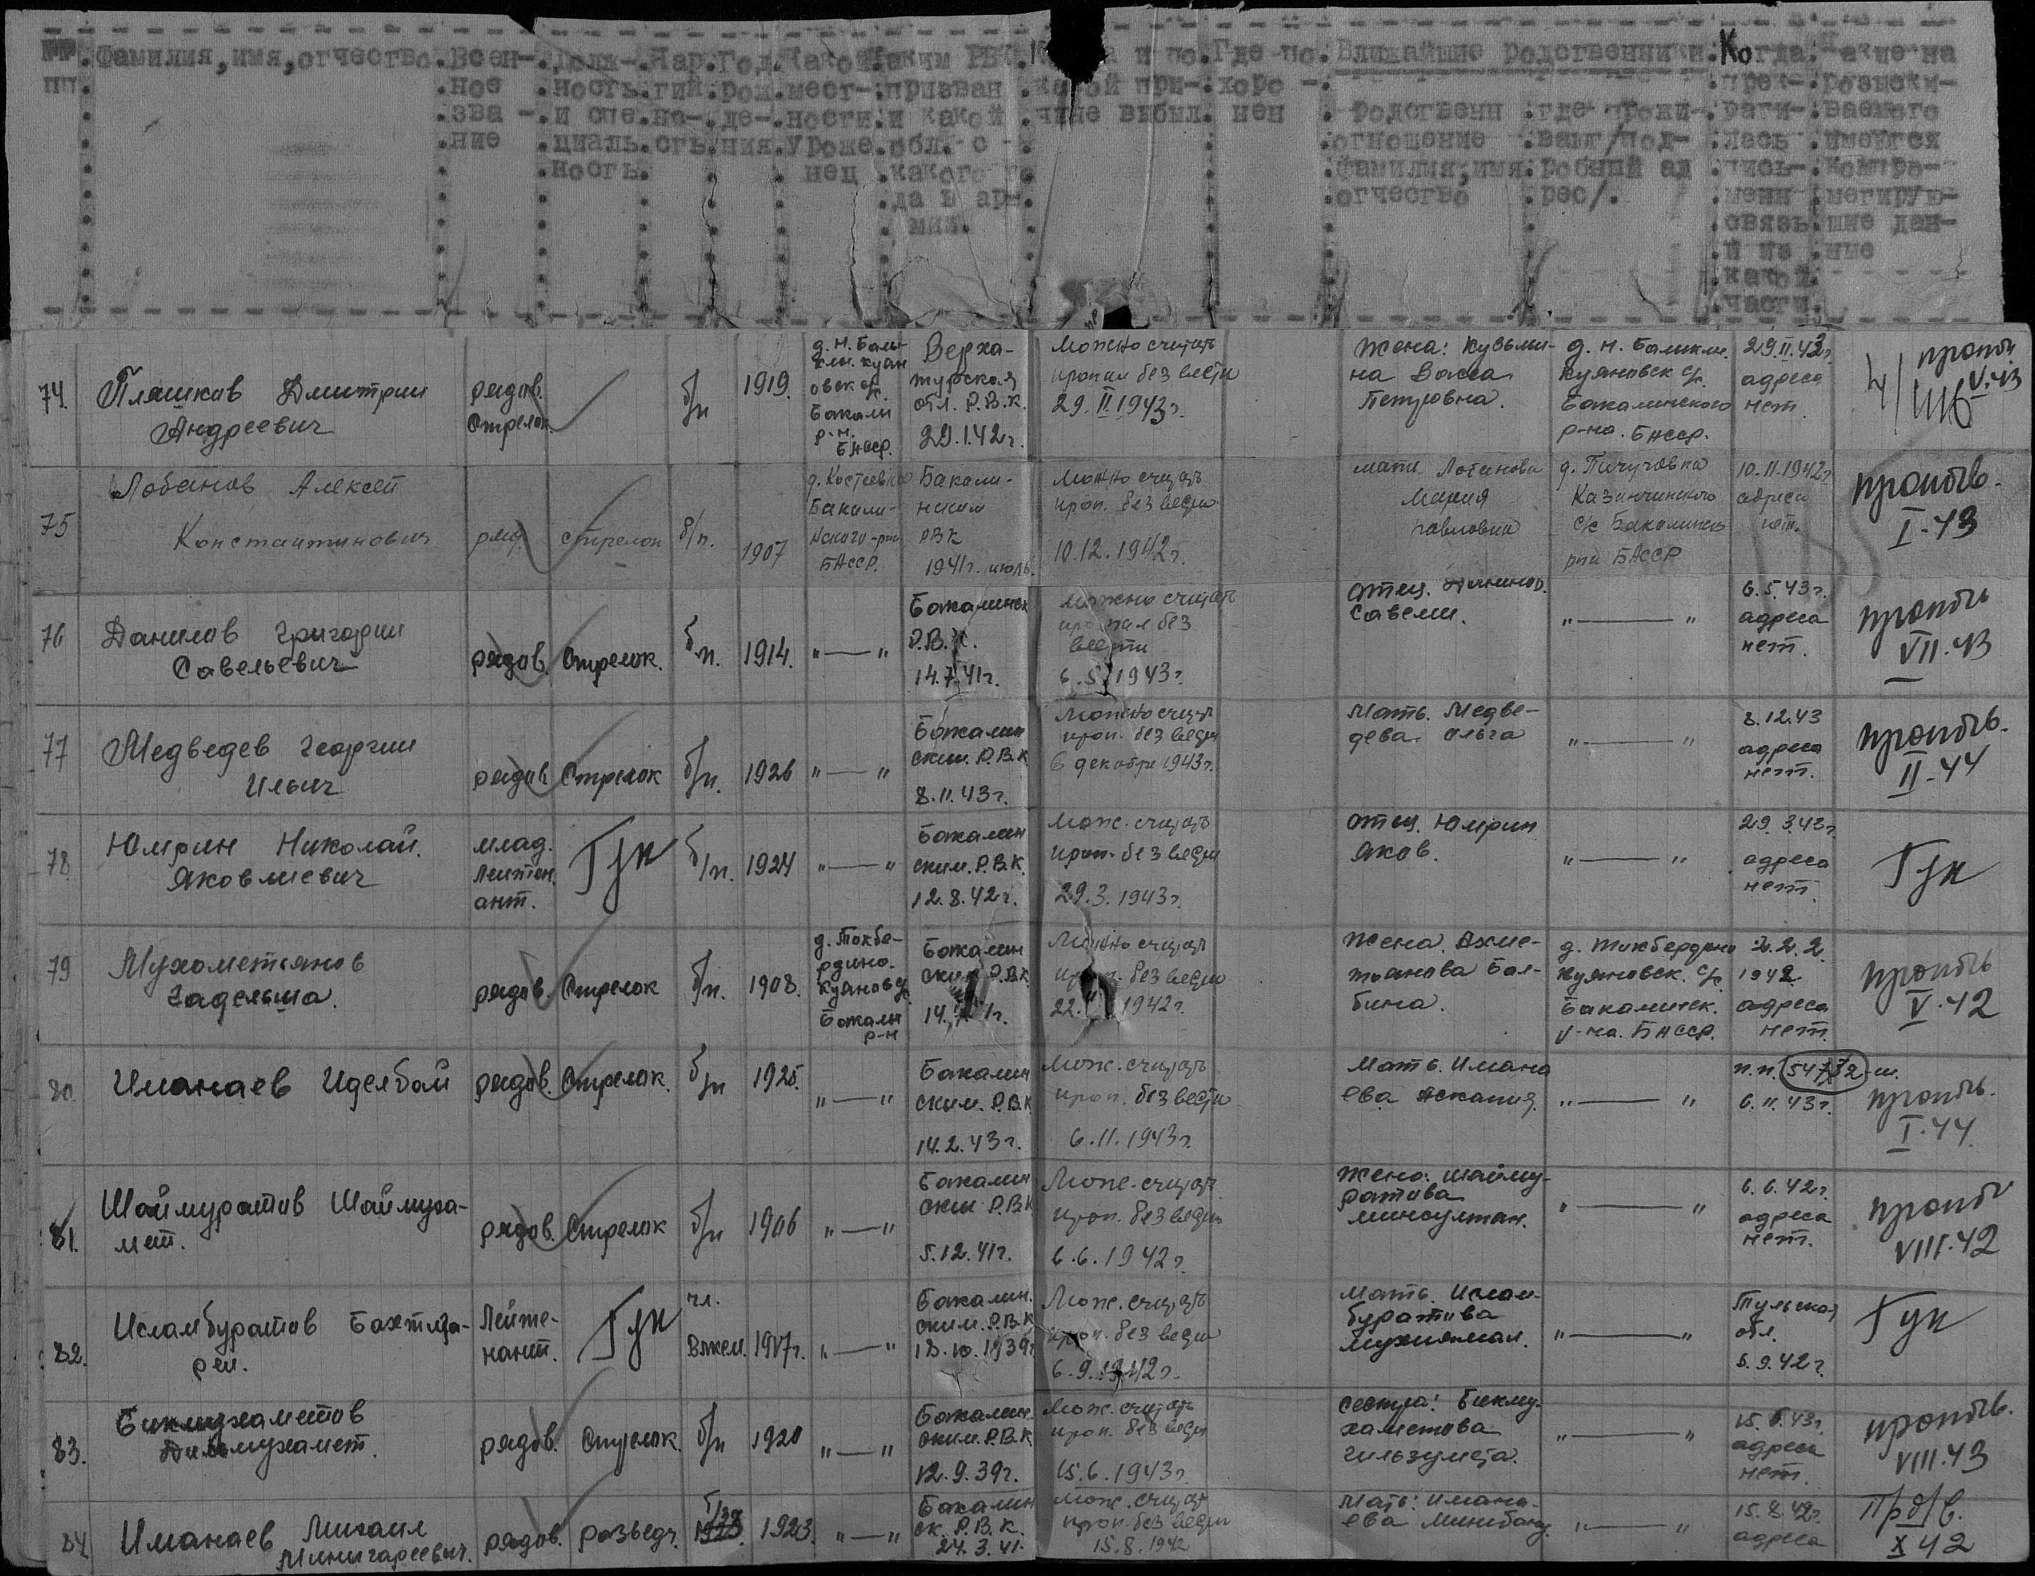 №№ пп. Фамилия, имя, отчество. Воен- ное зва- ние Долж- ность и спе- циаль- ность. Пар- тий- но- сть Год рож- де- ния. Какой мест- ности уроже- нец Каким РВК призван и какой обл. с какого го- да в ар- мии. и по какой при- чине выбыл. Где по- хоро- нен
Ближайшие родственники. родственн отношение фамилия, имя отчество где прожи- вают /под- робный ад рес/. Когда прек- рати- лась пись- менн связь и из какой части. Какие на розыски- ваемого имеются компро- метирую- щие дан- ные
74. Пляшков Дмитрий Андреевич рядов. Стрелок б/п 1919. Бакали р-н. БАССР. обл. Р.В.К. 20.1.42г. Можно считать пропал без вести 29.II.1943г. Жена: Кузьми- на Васса Петровна. Куяновск с/с. Бакалинского р-на. БАССР. 29.II.43г. адреса нет. V.43
75 Лобанов Алексей Константинович ряд. стрелок б/п. 1907 д. Костеевка Бакали- нского р-на БАССР. Бакали- нским РВК 1941г. июль. Можно считать проп. без вести 10.12.1942г. мать Лобанова Мария Павловна д. Пичуговка Казанчинского с/с Бакалинск р-на БАССР 10.II.1942г адреса нет. пропбв. I-43
76 Данилов Григорий Савельевич рядов. Стрелок. б/п. 1914. "——" Бакалинск Р.В.К. 14.7.41г. Можно считать пропал без вести 6.5.1943г. отец. Данилов. Савелий. "——" 6.5.43г. адреса нет. пропбв VII.43
77 Медведев Георгий Ильич рядов. Стрелок б/п. 1926 "——" Бакалин ским. Р.В.К 8.11.43г. Можно считать проп. без вести 6 декабря 1943г. Мать. Медве- дева. Ольга "——" 8.12.43 адреса нет. пропбв. II-44
78. Юмрин Николай. Яковлиевич млад. Лейтен. ант. Гук б/п. 1924 "——" Бакалин ским. Р.В.К. 12.8.42г. Мож. считать проп. без вести 29.3.1943г. отец. Юмрин Яков. "——" 29.3.43г. адреса нет Гук
79 Мухаметьянов Гадельша. рядов. Стрелок б/п. 1908. д. Токбе- рдино. Куянов с/с. Бакали р-н Бакалин ским Р.В.К Можно считать проп. без вести 1942г. Жена. Ахме- тьянова Бал- бина. д. Токбердино Куяновск. с/с. Бакалинск. р-на. БАССР. 2.2.2. 1942. адреса нет. пропбв V.42
80. Иманаев Иделбай рядов. Стрелок. б/п 1925. "——" Бакалин ским. Р.В.К 14.2.43г. Мож. считать проп. без вести 6.11.1943г. Мать. Имана ева Аскания. "——" п.п. 6.11.43г. пропбв. I.44.
81. Шаймуратов Шаймуха- мет. рядов. Стрелок б/п 1906 "——" Бакалин ским Р.В.К 5.12.41г. Мож. считать проп. без вести 6.6.1942г. Жена: Шайму- ратова Минсултан. "——" 6.6.42г. адреса нет. пропбв VIII.42
82. Исламбуратов Бахтига- рей. Лейте- нант. Гук чл. Влксм. 1917г. "——" Бакалин. ским. Р.В.К 18.10.1939г Мож. считать проп. без вести 6.9.1942г. Мать. Ислам- буратова Мухиямал. "——" Тульская обл. 6.9.42г. Гук
83. Бикмухаметов Дильмухамет. рядов. Стрелок. б/п 1920 "——" Бакалин. ским. Р.В.К 12.9.39г. Мож. считать проп. без вести 15.6.1943г. сестра: Бикму- хаметова "——" 15.6.43г. адреса нет. пропбв. VIII.43
84 Иманаев Михаил Минигареевич. рядов. разведч. 1923. "——" Бакалин ск. Р.В.К. 24.3.41. Мож. считать проп. без вести 15.8.1942 Мать: Имана- ева Минибану. "——" 15.8.42г. адреса X 42